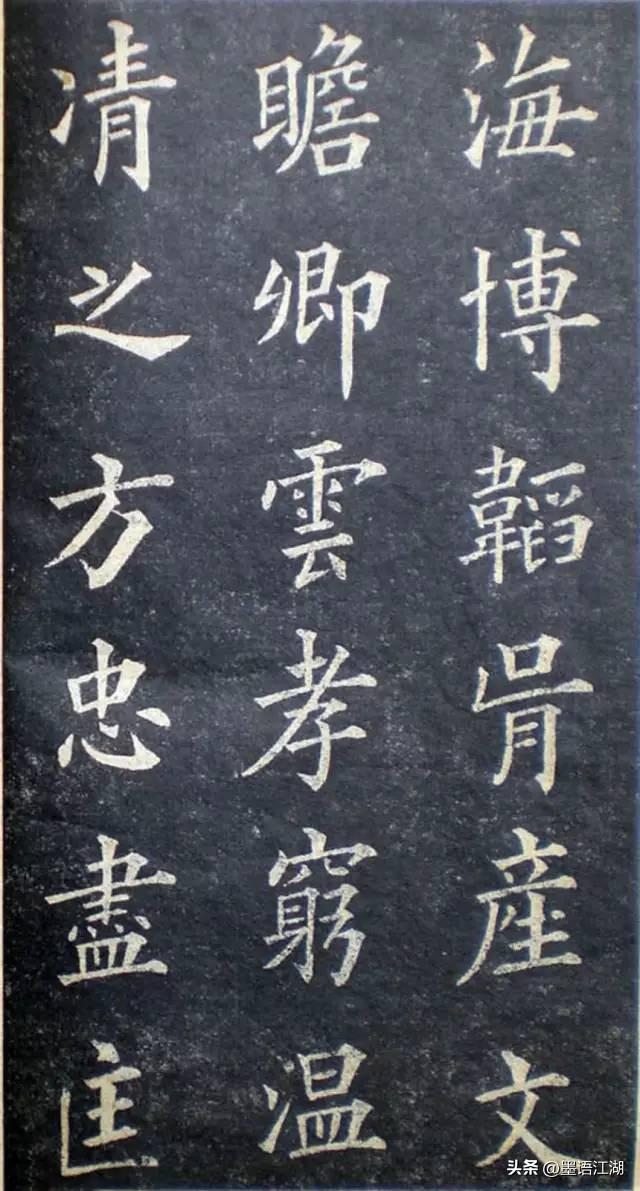 海博韜胥産文
瞻卿雲孝窮温
凊之方忠盡匡
头条 @墨语江湖